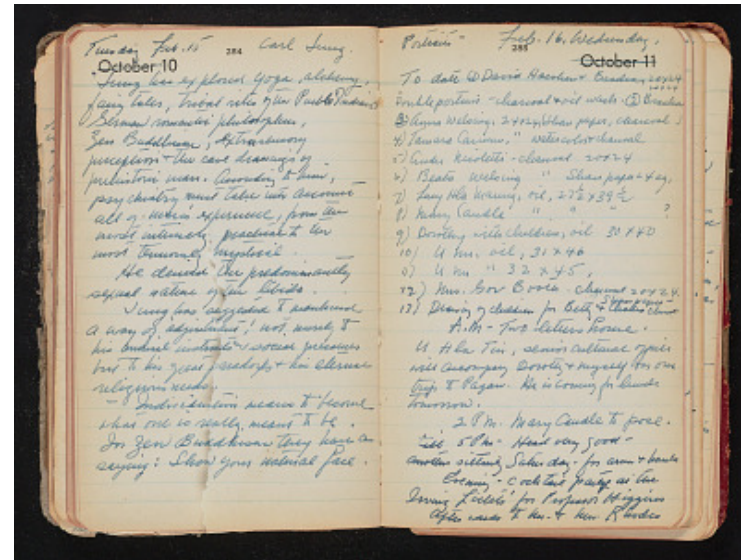 Tuesday Feb. 15 284 Carl Jung.
October 10
Jung has explored Yoga, alchemy,
fairy tales, tribal rites of the Pueblo Indians
German romantic philosophers,
Zen Buddhism, extrasensory
perception & the cave drawings of
prehistoric man. According to him,
psychiatry must take into account
all of man's experience, from the
most intensely practical to the
most tenuously mystical.
He denied the predominantly
sexual nature of the libido.
Jung has suggested to mankind
a way of adjustment, not merely to
his animal instincts & social pressures
but to his great & his eternal
religious needs.
Individuation means to become
what one is really meant to be.
In Zen Buddhism they have a
saying: Show your natural face.
Portraits Feb. 16, Wednesday,
285
October 11
To date 1) David 20x24
Double portrait - charcoal & oil wash.
3) Anna Welsing, 20x24 (Shan paper, charcoal)
4) Tamara " watercolor & charcoal
5) Nicoletti - charcoal 20x24
6) Beata Welsing " Shan paper
7) Lucy Hla Maung, oil, 27½ x 39½
8) Mary Caudle " " " ?
9) Dorothy with children, oil 30x40
10) U Nu. oil, 31 x 46
11) U Nu " 32 x 45,
12) Mrs. Gov - charcoal 20x24
13) Drawing of children for Betty &
A.M. - Two letters home.
U Hla Tin, senior cultural officer
will accompany Dorothy & myself on our
trip to Pagan. He is coming for lunch
tomorrow.
2 P.M. Mary Caudle to pose.
till 5 P.M. - Head very good -
another sitting Saturday - for arm & hands
Evening - cocktail party at the
Irving for Professor Higgins
Afterwards to Mr. & Mrs. Rhodes